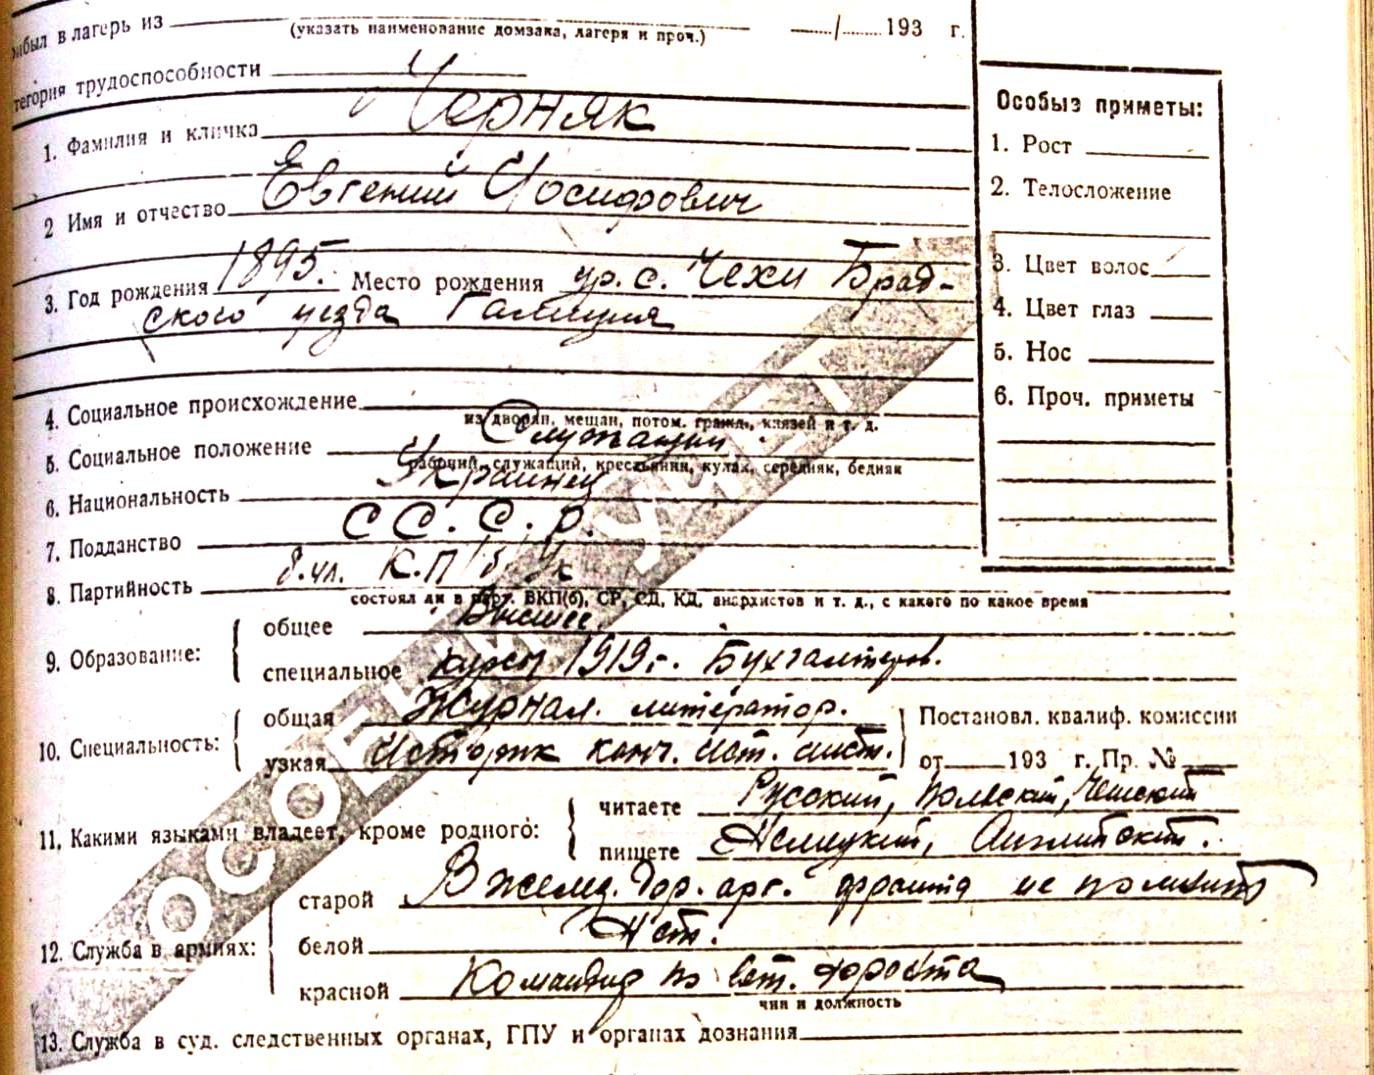 ибыл в лагерь из
(указать наименование домзака, лагеря и проч.)
/ 193 г.
тегория трудоспособности
1. Фамилия и кличка Черняк
2 Имя и отчество Евгений Иосифович
3. Год рождения 1895. Место рождения ур. с. Чехи Брад-
ского уезда Галиция
4. Социальное происхождение
из дворян, мещан, потом. гражд., князей и т. д.
5. Социальное положение Служащий
рабочий, служащий, крестьянин, кулак, середняк, бедняк
6. Национальность Украинец
7. Подданство СС.С.Р.
8. Партийность б.чл. К.П/б/У
состоял ли в парт. ВКП(б), СР, СД, КД, анархистов и т. д., с какого по какое время
9. Образование:
общее Высшее.
специальное курсы 1919 г. Бухгалтеров.
10. Специальность:
общая Журнал. литератор.
узкая Историк
Постановл. квалиф. комиссии
от 193 г. Пр. №
11. Какими языками владеет, кроме родного:
читаете Русский, Польский, Чешский
пишете Немецкий, Английский.
12. Служба в армиях:
старой В желез. дор. фронта не
белой Нет.
красной фронта
чин и должность
13. Служба в суд. следственных органах, ГПУ и органах дознания
Особыз приметы:
1. Рост
2. Телосложение
3. Цвет волос
4. Цвет глаз
5. Нос
6. Проч. приметы
ОСОБЫЙ УЧЕТ